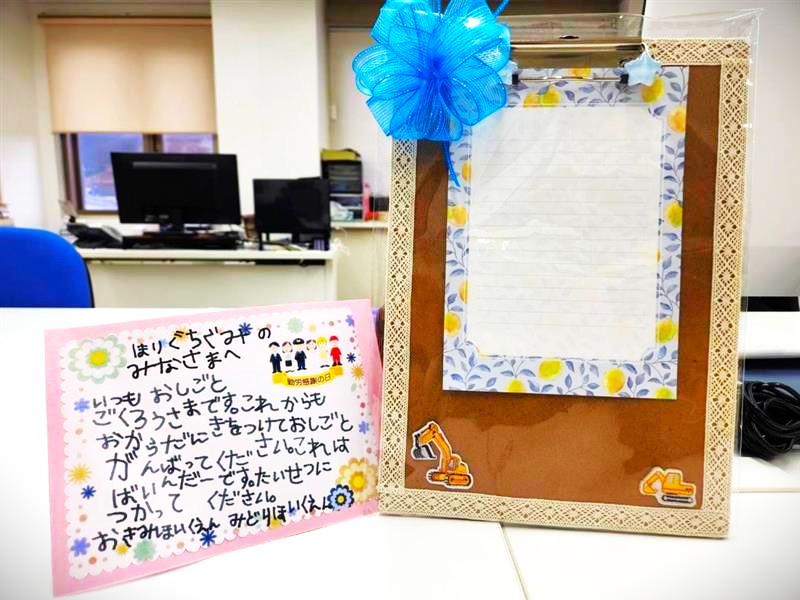 ほりぐちぐみの
みなさまへ
勤労感謝の日
いつも おしごと
ごくろうさまです。これ からも
おからだに きをつけて おしごと
がんばって ください。これは
ばいんだーです。たいせつに
つかって ください。
おぎみほいくえん みどりほいくえん